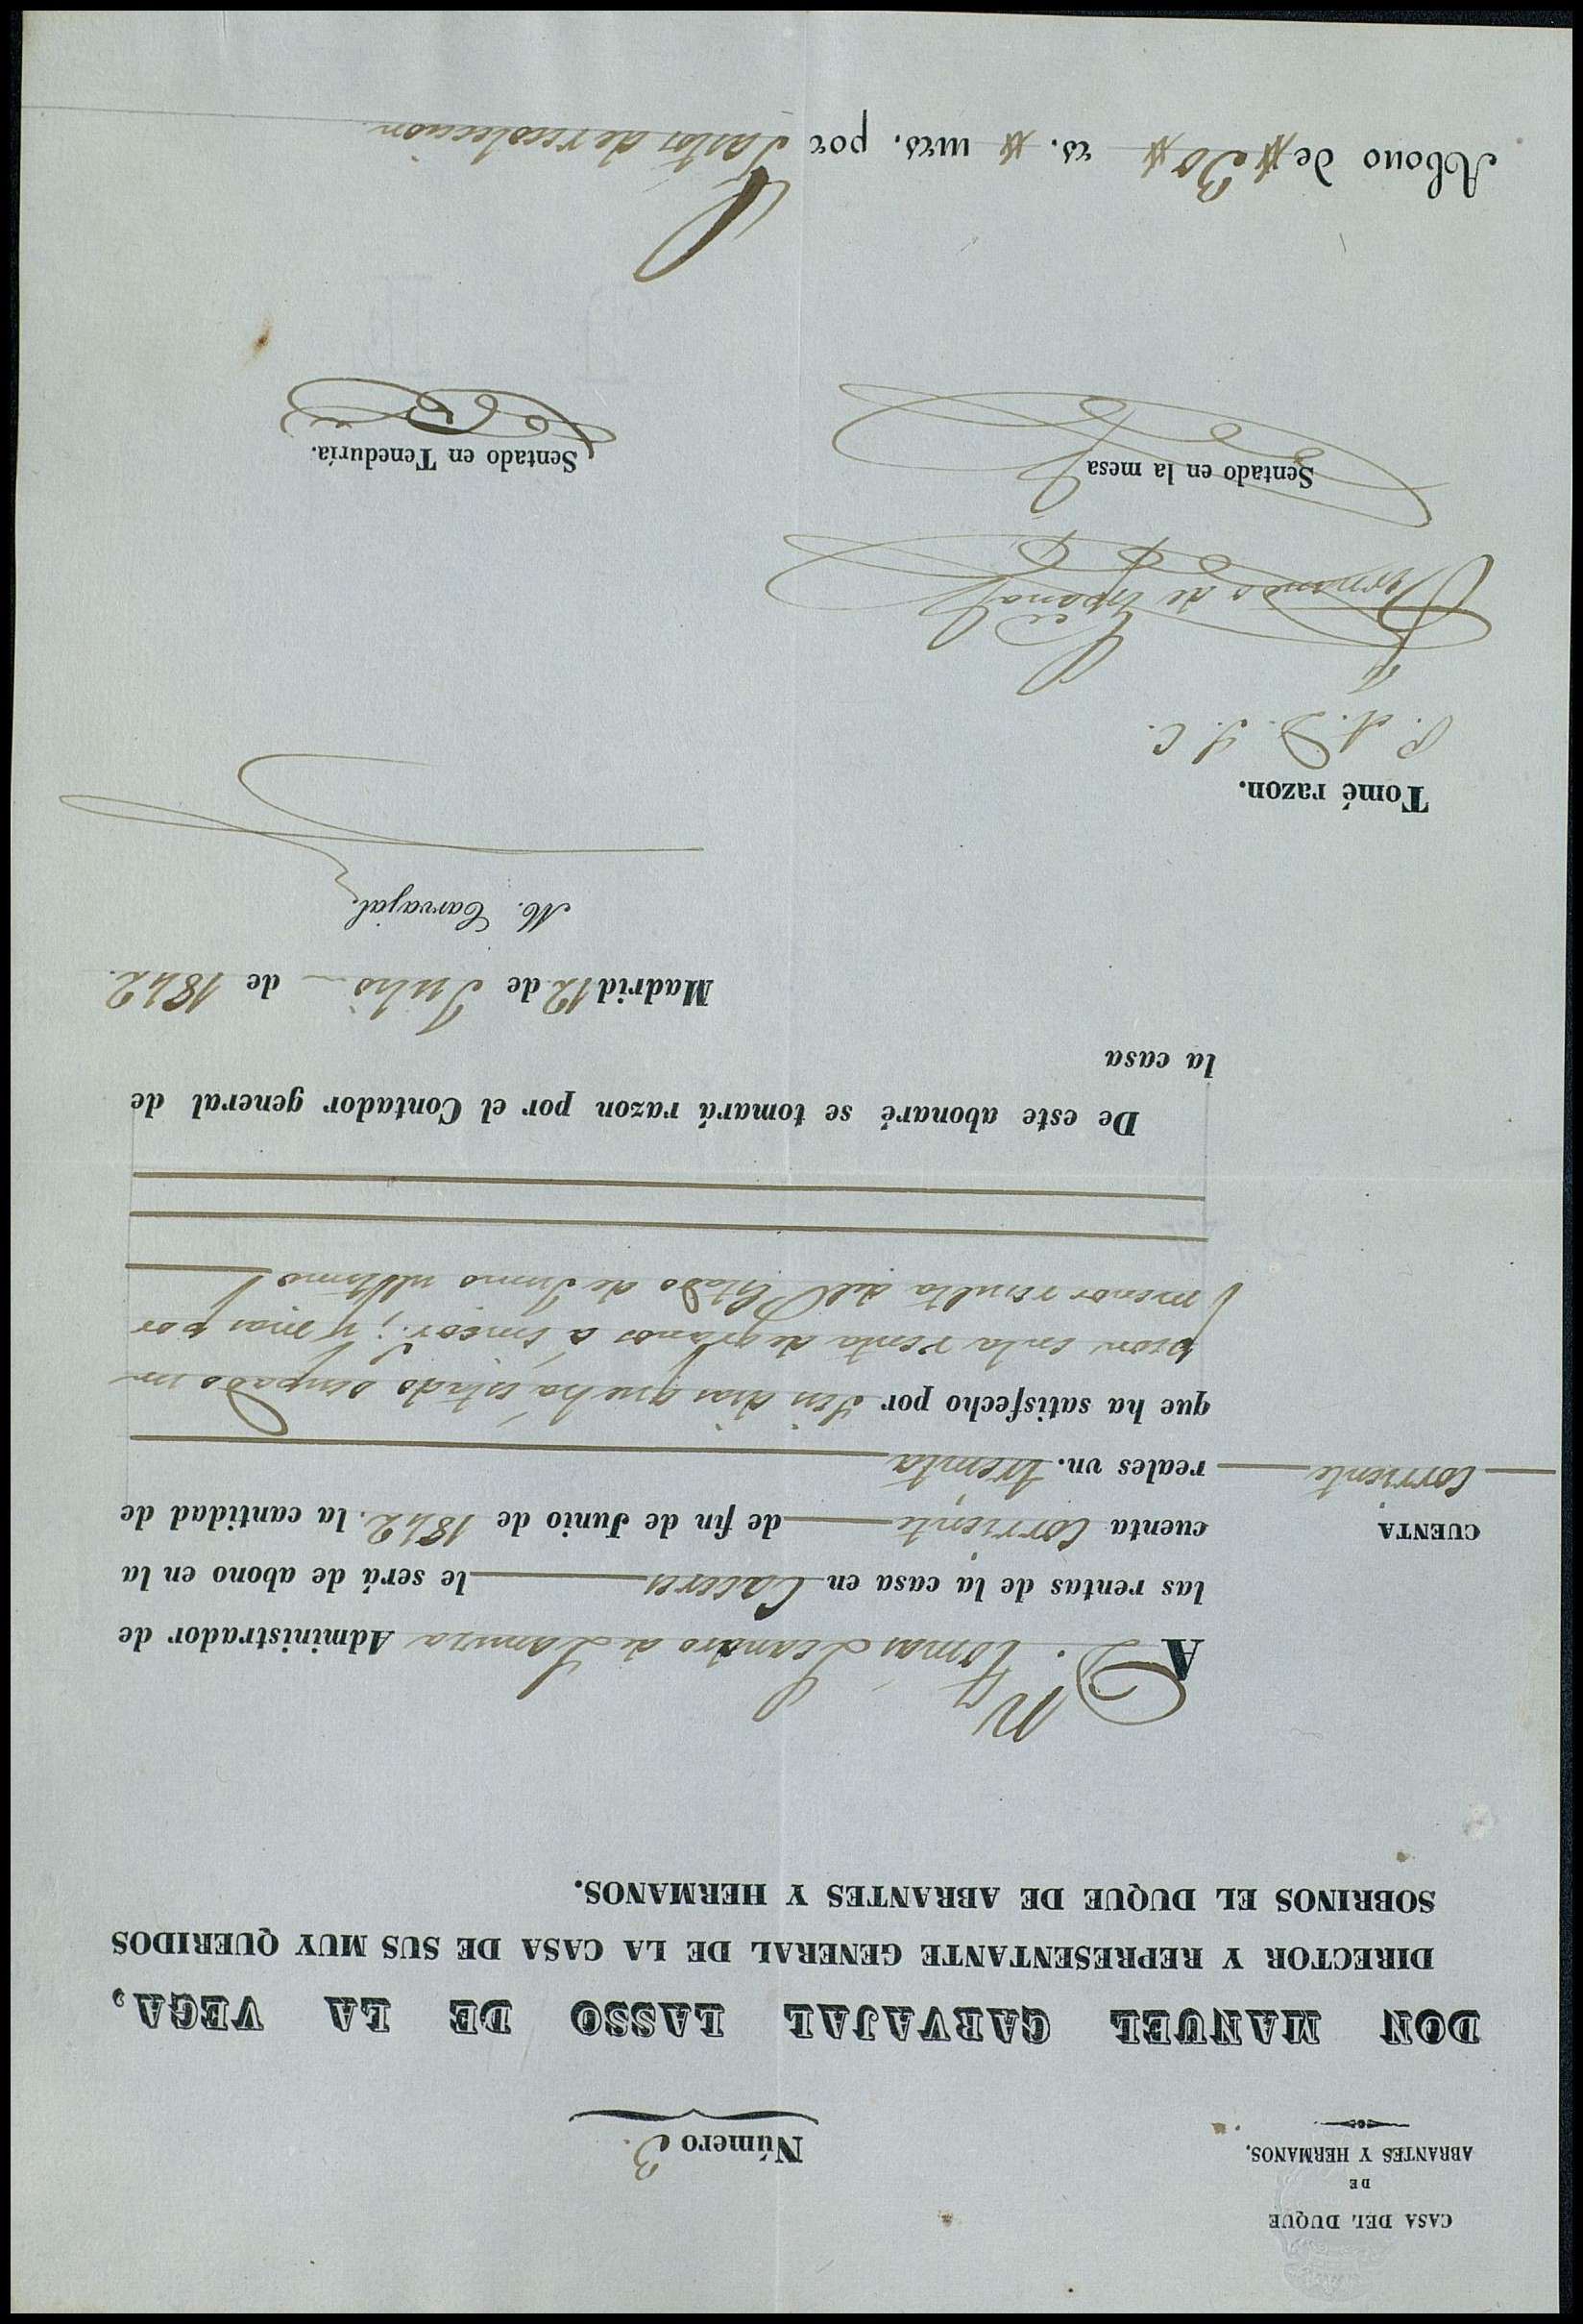 CASA DEL DUQUE
DE
ABRANTES Y HERMANOS.
Número 3.
DON MANUEL CARVAJAL LASSO DE LA VEGA,
DIRECTOR Y REPRESENTANTE GENERAL DE LA CASA DE SUS MUY QUERIDOS
SOBRINOS EL DUQUE DE ABRANTES Y HERMANOS.
A D. Tomas Leandro de Administrador de
las rentas de la casa en Caceres le será de abono en la
CUENTA
cuenta corriente de fin de Junio de 1842. la cantidad de
corriente
reales vn. treinta
que ha satisfecho por seis dias que há estado ocupado un
peon en la renta de granos á ; y mas por
menor resulta del Estado de Junio ultimo
De este abonaré se tomará razon por el Contador general de
la casa
Madrid 12 de Julio de 1842.
M. Carvajal
Tomé razon.
P. A. D. S. C.
Fernando de España
Sentado en la mesa
Sentado en Teneduría.
Abono de 30 rs. mrs. por Gastos de recoleccion